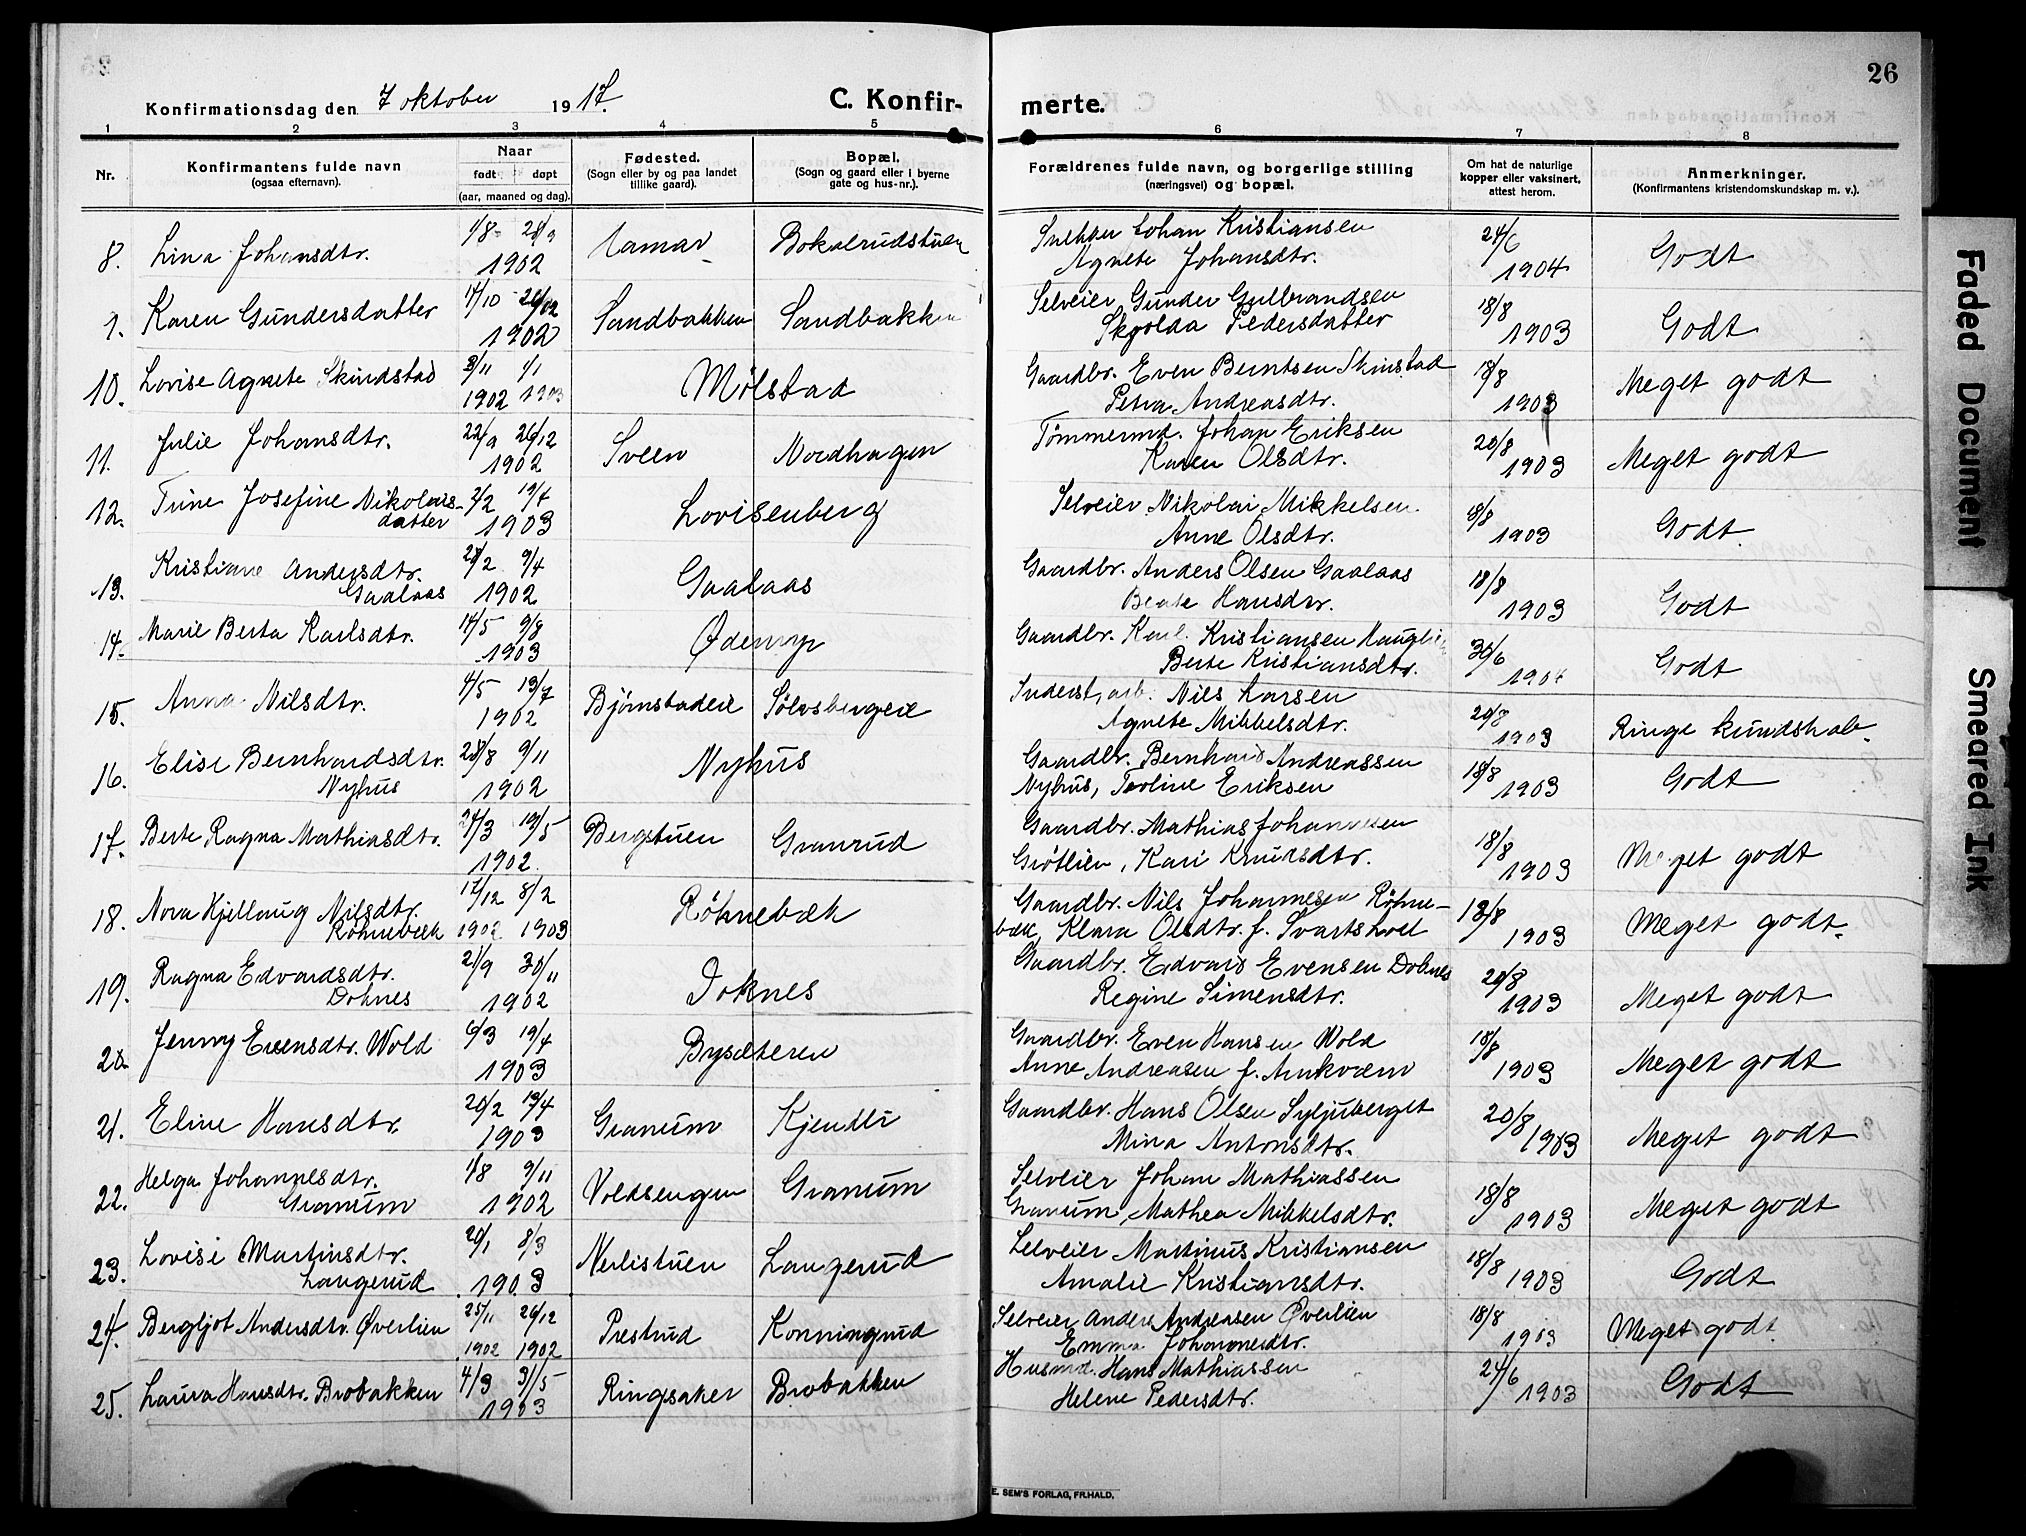 26
Konfirmationsdag den 7 oktober 1917.
C. Konfir-merte.
1 2 3 4 5 6 7 8
Nr.
Konfirmantens fulde navn
(ogsaa efternavn).
Naar
født døpt
(aar, maaned og dag).
Fødested.
(Sogn eller by og paa landet
tillike gaard).
Bopæl.
(Sogn og gaard eller i byerne
gate og hus-nr.).
Forældrenes fulde navn, og borgerlige stilling
(næringsvei) og bopæl.
Om hat de naturlige
kopper eller vaksinert,
attest herom.
Anmerkninger.
(Konfirmantens kristendomskundskap m. v.).
8. Lina Johansdtr. 1/8 1902 Hamar Bokalrudstuen
Snekker Johan Kristiansen
Agnete Johansdtr. 24/6 1904 Godt
Karen Gundersdatter 26/12 1902 Sandbakken Sandbakken
Selveier Gunder Gulbrandsen
Skjolda Pedersdatter 18/8 1903 Godt
10. Lovise Agnete Skindstad 3/11 1902 4/1 1903 Mølstad
Gaardbr. Even Berntsen Skinstad
Petra Andreasdtr. 18/8 1903 Meget godt
11. Julie Johansdtr. 22/9 26/12 1902 Sveen Nordhagen
Tømmermd. Johan Eriksen
Karen Olsdtr. 20/8 1903 Meget godt
12. Trine Josefine Nikolais-
datter 2/2 19/4 1903 Lovisenberg
Selveier Nikolai Mikkelsen
Anne Olsdtr. 18/8 1903 Godt
13. Kristiane Andersdtr.
Gaalaas 9/4 1902 Gaalaas
Gaardbr. Anders Olsen Gaalaas
Beate Hansdtr. 18/8 1903 Godt
14. Marie Berta Karlsdtr. 14/5 9/8 1903 Øderup
Gaardbr. Karl Kristiansen Hauglien
Berte Kristiansdtr. 30/6 1904 Godt
15. Anna Nilsdtr. 4/5 13/7 1902 Bjørnstadeie Sølvsbergeie
Inderst, arb. Nils Larsen
Agnete Mikkelsdtr. 20/8 1903 Ringe kundskab.
16. Elise Bernhardsdtr.
Nyhus 28/8 9/11 1902 Nyhus
Gaardbr. Bernhard Andreassen
Nyhus, Teoline Eriksen 18/8 1903 Godt
17. Berte Ragna Mathiasdtr. 24/3 19/5 1902 Bergstuen Granrud
Gaardbr. Mathias Johannesen
Grøtlien, Kari Knudsdtr. 18/8 1903 Meget godt
18. Nora Kjellaug Nilsdtr.
Røhnebæk 17/12 1902 8/2 1903 Røhnebæk
Gaardbr. Nils Johannesen Røhne-
bæk, Klara Olsdtr. f. Svartshoel 18/8 1903 Meget godt.
19. Ragna Edvardsdtr.
Doknes 21/9 30/11 1902 Doknes
Gaardbr. Edvard Evensen Doknes
Regine Simensdtr. 20/8 1903 Meget godt
20. Jenny Evensdtr. Wold 6/3 19/4 1903 Bysæteren
Gaardbr. Even Hansen Wold
Anne Andreasen f. Arnkværn 18/8 1903 Meget godt
21. Eline Hansdtr. 20/2 19/4 1903 Granum Kjendli
Gaardbr. Hans Olsen Syljuberget
Mina Antonsdtr. 20/8 1903 Meget godt
22. Helga Johannesdtr.
Granum 1/8 9/11 1902 Voldsengen Granum
Selveier Johan Mathiassen
Granum, Mathea Mikkelsdtr. 18/8 1903 Meget godt
23. Lovise Martinsdtr.
Langerud 20/1 8/3 1903 Nerlistuen Langerud
Selveier Martinus Kristiansen
Amalie Kristiansdtr. 18/8 1903 Godt
24. Bergljot Andersdtr. Øverlien 25/11 1902 26/12 1902 Prestrud Konningrud
Selveier Anders Andreasen Øverlien
Emma Johannesdtr. 18/8 1903 Meget godt
25. Laura Hansdtr. Brobakken 4/3 31/5 1903 Ringsaker Brobakken
Husmd. Hans Mathiassen
Helene Pedersdtr. 24/6 1903 Godt
E. SEM'S FORLAG, FR.HALD.
Faded Document
Smeared Ink